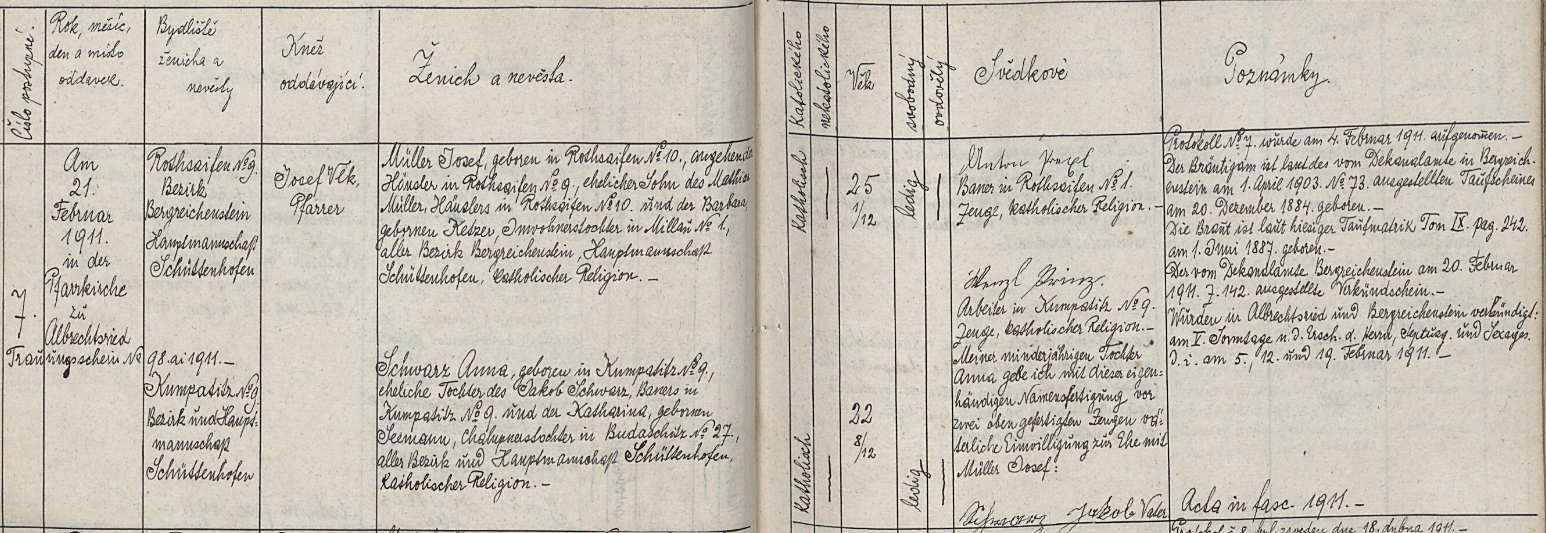 číslo postupné.
Rok, měsíc,
den a místo
oddavek.
Bydliště
ženicha a
nevěsty
Kněz
oddávající.
Ženich a nevěsta.
Katolického
nekatolického
Věk
svobodný
ovdovělý
Svědkové
Poznámky.
7.
Am
21.
Februar
1911.
in der
Pfarrkirche
zu
Albrechtsried
Trauungsschein No 98. ai 1911.-
Rothsaifen No 9.
Bezirk
Bergreichenstein
Hauptmannschaft
Schüttenhofen
Kumpatitz No 9
Bezirk und Haupt-
mannschaft
Schüttenhofen
Josef Vlk,
Pfarrer
Müller Josef, geboren in Rothsaifen No 10., angehender
Häusler in Rothsaifen No 9., ehelicher Sohn des Mathias
Müller, Häuslers in Rothsaifen No 10. und der Barbara,
gebornen Ketzer, Inwohnerstochter in Millau No 1.,
aller Bezirk Bergreichenstein, Hauptmannschaft
Schüttenhofen, katholischer Religion. -
Schwarz Anna, geboren in Kumpatitz No 9.,
eheliche Tochter des Jakob Schwarz, Bauers in
Kumpatitz No 9. und der Katharina, gebornen
Seemann, Chalupnerstochter in Budaschitz No 27.,
aller Bezirk und Hauptmannschaft Schüttenhofen,
katholischer Religion. -
katholisch
25
1/12
ledig
katholisch
22
8/12
ledig
Anton
Bauer in Rothsaifen No 1.
Zeuge, katholischer Religion. -
Wenzl Prinz.
Arbeiter in Kumpatitz No 9.
Zeuge, katholischer Religion. -
Meiner minderjährigen Tochter
Anna gebe ich mit dieser eigen=
händigen Namensfertigung vor
zwei oben gefertigten Zeugen vä=
terliche Einwilligung zur Ehe mit
Müller Josef:
Schwarz Jakob Vater
Protokoll No 7. wurde am 4. Februar 1911. aufgenomen. -
Der Bräutigam ist laut des vom Dekanalamte in Bergreich-
enstein am 1. April 1903. No 73. ausgestellten Taufscheines
am 20. Dezember 1884. geboren. -
Die Braut ist laut hiesiger Taufmatrik Tom IX. pag. 242.
am 1. Juni 1887. geboren. -
Der vom Dekanalamte Bergreichenstein am 20. Februar
1911. Z. 142. ausgestellte Verkündschein. -
Wurden in Albrechtsried und Bergreichenstein verkündigt:
am V. Sonntage n. d. Ersch. d. Herrn, Septuag. und Sexages.
d. i. am 5., 12. und 19. Februar 1911. -
Acta in fasc. 1911. -
dne 18. dubna 1911. -